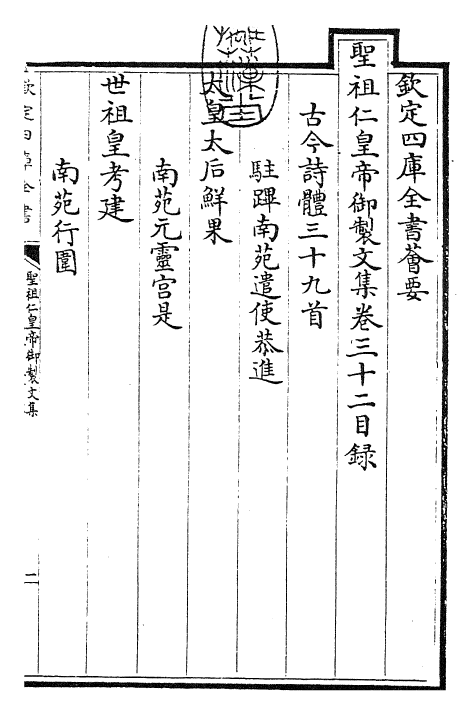 欽定四庫全書薈要
聖祖仁皇帝御製文集卷三十二目録
古今詩體三十九首
駐蹕南苑遣使恭進
太皇太后鮮果
南苑元靈宫是
世祖皇考建
南苑行圍
欽定四庫全書
聖祖仁皇帝御製文集
二